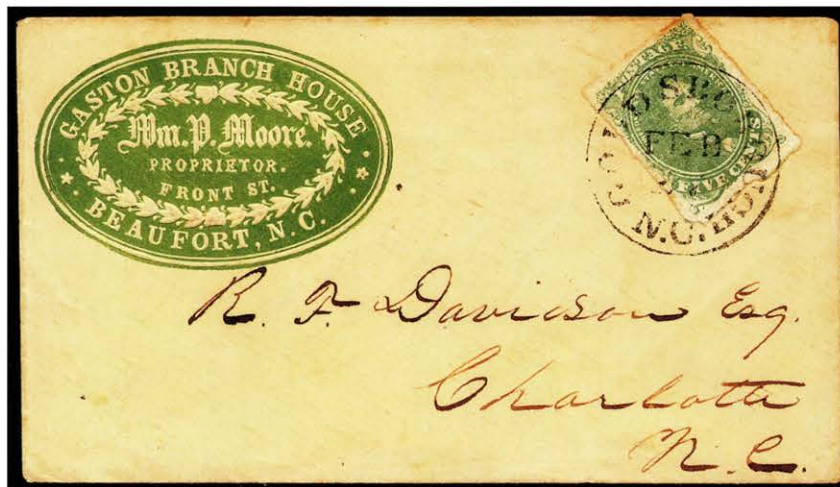 GASTON BRANCH HOUSE
Wm. P. Moore.
PROPRIETOR.
FRONT ST.
BEAUFORT, N.C.
POSTAGE
FIVE CENTS
GOLDSBOROUGH
FEB
N.C.
R. F. Davidson Esq.
Charlotte
N.C.